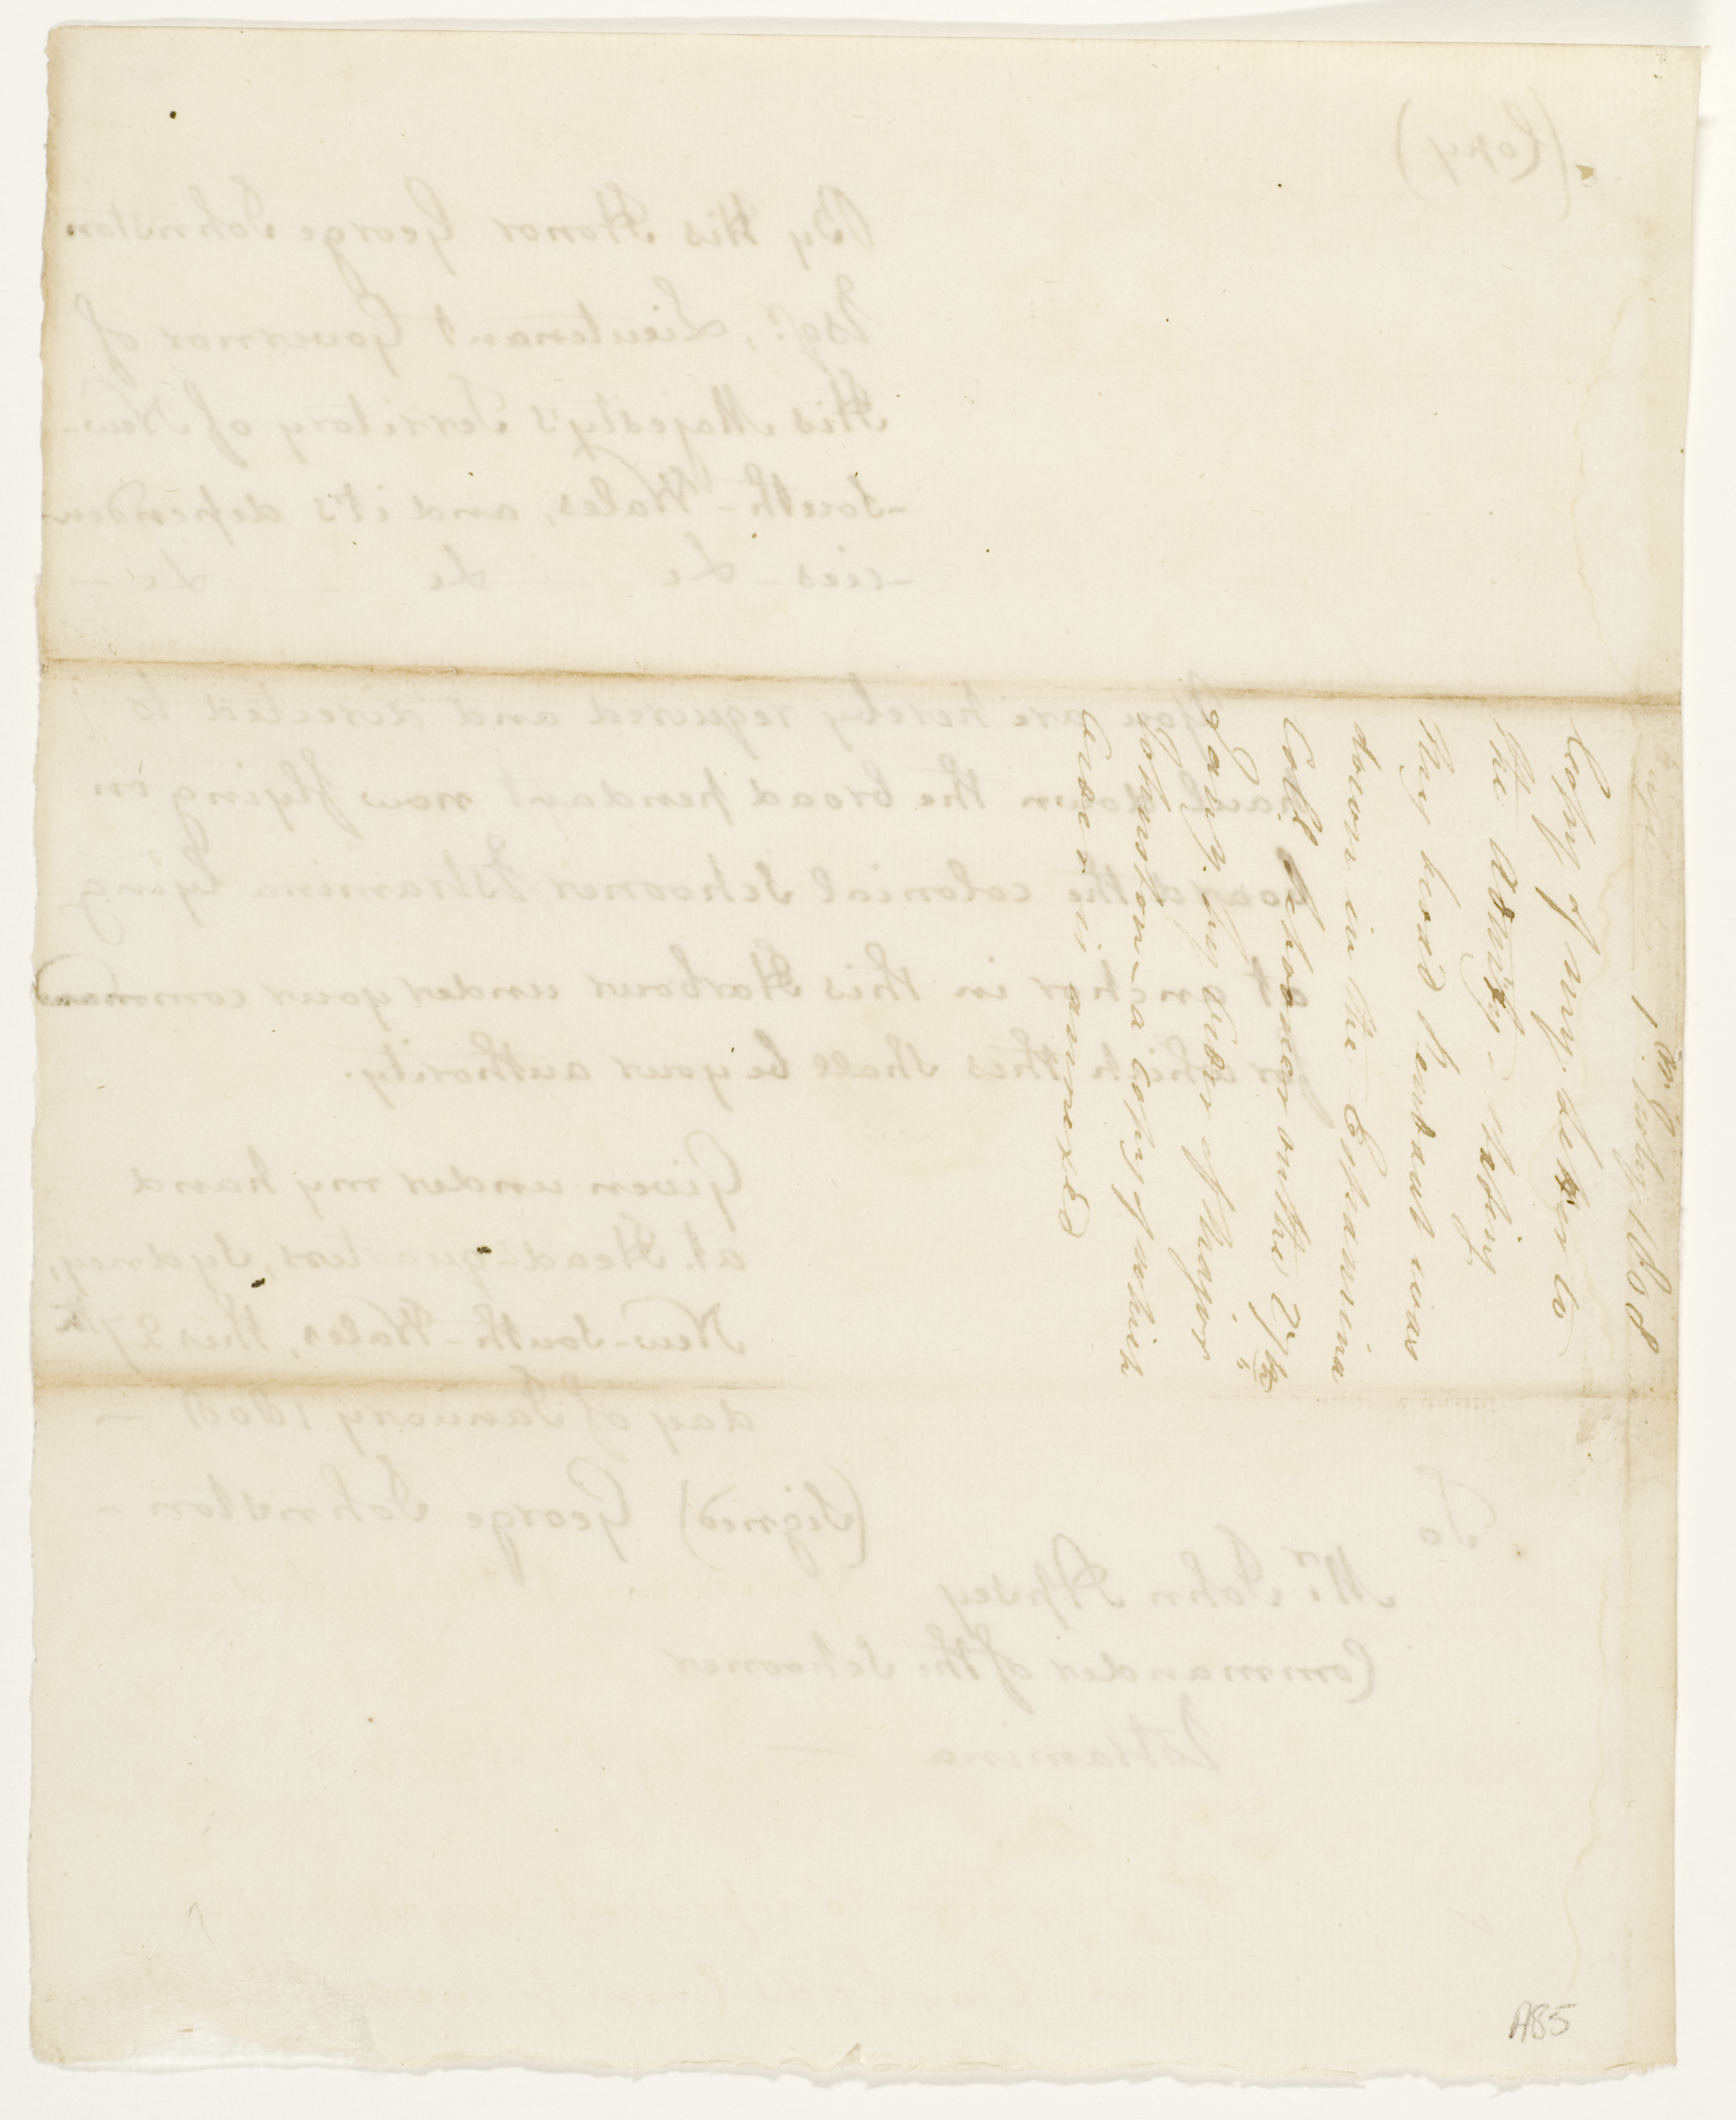 July 1808
Copy of my letter to
the Admty - stating
My broad Pendant was
down in the Estramina
Coll. Schooner on the 27th
Jany. by order of Major
Johnston - a copy of which
order is annexed
(Copy)
By His Honor George Johnston
Esqr., Lieutenant Governor of
His Majesty's Territory of New-
-South-Wales, and it's dependen-
-cies - &c &c &c -
You are hereby required and directed to
haul down the broad pendant now flying on
board the colonial Schooner Estramina lying
at anchor in this Harbour under your command
for which this shall be your authority.
Given under my hand
at Head-quarters, Sydney,
New-South-Wales, this 27th
day of January 1808 -
(Signed) George Johnston -
To
Mr. John Apsey
Commander of the Schooner
Estramina
A85